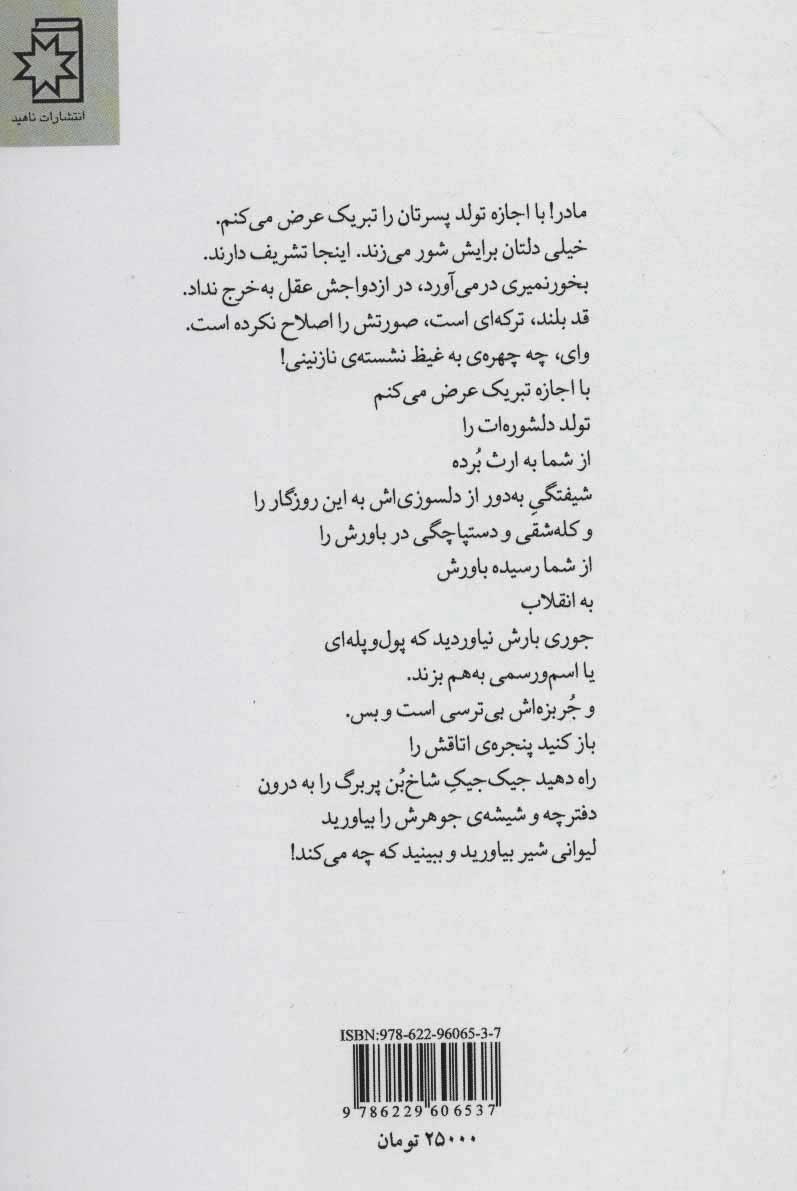 انتشارات ناهید
مادر! با اجازه تولد پسرتان را تبریک عرض می‌کنم.
خیلی دلتان برایش شور می‌زند. اینجا تشریف دارند.
بخورنمیری درمی‌آورد، در ازدواجش عقل به‌خرج نداد.
قد بلند، ترکه‌ای است، صورتش را اصلاح نکرده است.
وای، چه چهره‌ی به غیظ نشسته‌ی نازنینی!
با اجازه تبریک عرض می‌کنم
تولد دلشوره‌ات را
از شما به ارث بُرده
شیفتگیِ به‌دور از دلسوزی‌اش به این روزگار را
و کله‌شقی و دستپاچگی در باورش را
از شما رسیده باورش
به انقلاب
جوری بارش نیاوردید که پول‌وپله‌ای
یا اسم‌ورسمی به‌هم بزند.
و جُربزه‌اش بی‌ترسی است و بس.
باز کنید پنجره‌ی اتاقش را
راه دهید جیک‌جیکِ شاخ‌بُن پربرگ را به درون
دفترچه و شیشه‌ی جوهرش را بیاورید
لیوانی شیر بیاورید و ببینید که چه می‌کند!
ISBN:978-622-96065-3-7
9 786229 606537
۲۵۰۰۰ تومان